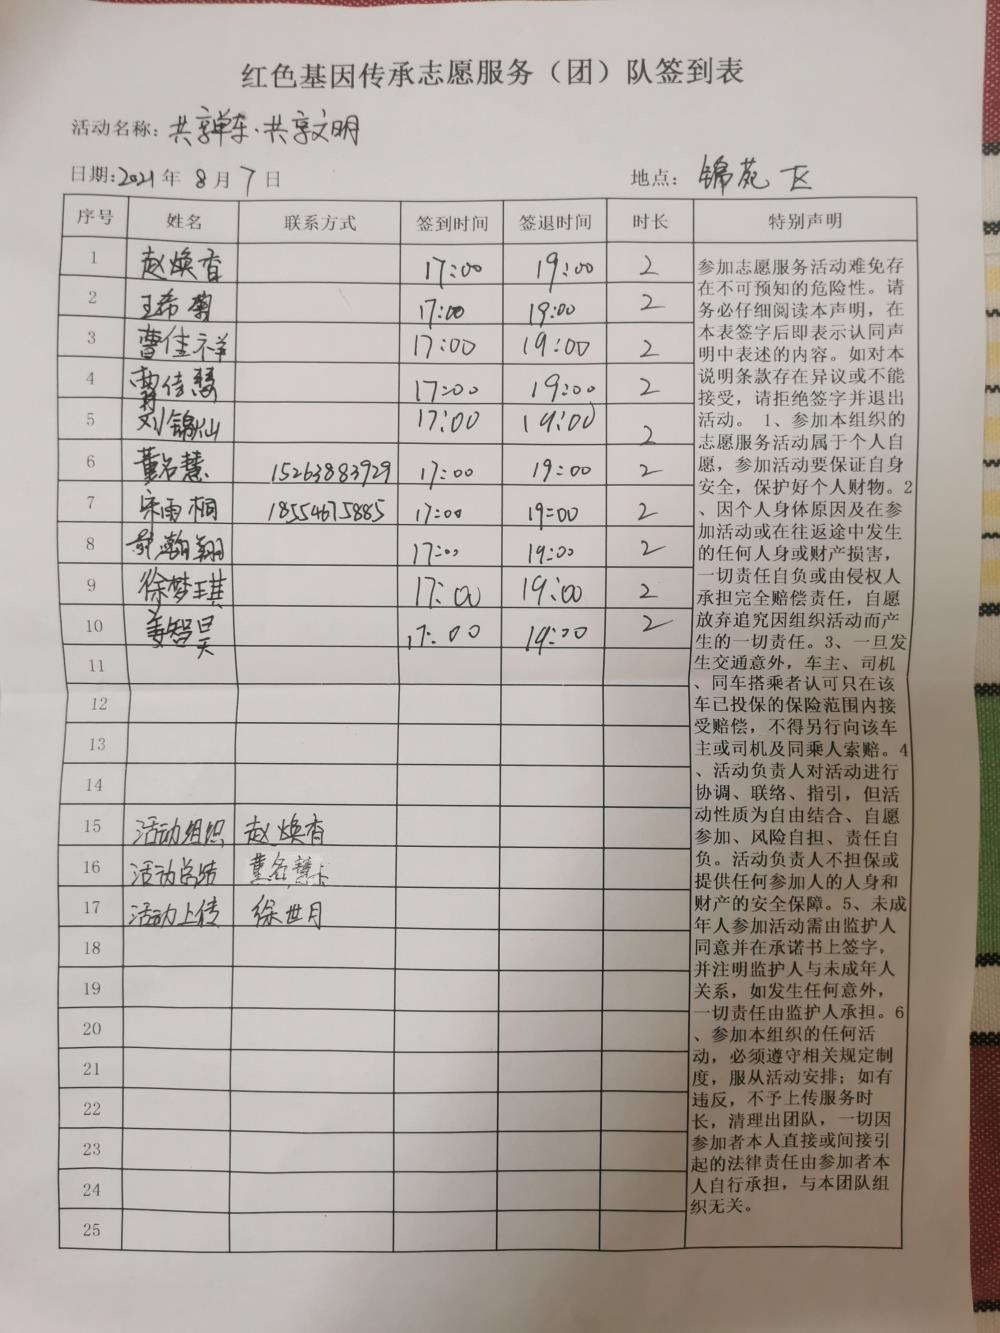 红色基因传承志愿服务（团）队签到表
活动名称：共享单车·共享文明
日期：2021年 8月 7日 地点：锦苑 区
序号 姓名 联系方式 签到时间 签退时间 时长 特别声明
1 赵焕香 17:00 19:00 2
2 王希菊 17:00 19:00 2
3 曹佳祥 17:00 19:00 2
4 曹佳慧 17:00 19:00 2
5 刘锦仙 17:00 19:00 2
6 董名慧 15263883929 17:00 19:00 2
7 宋雨桐 18554675885 17:00 19:00 2
8 瀚翔 17:00 19:00 2
9 徐梦琪 17:00 19:00 2
10 姜智昊 17:00 19:00 2
11
12
13
14
15 活动组织 赵焕香
16 活动总结 董名慧
17 活动上传 徐世月
18
19
20
21
22
23
24
25
参加志愿服务活动难免存
在不可预知的危险性。请
务必仔细阅读本声明，在
本表签字后即表示认同声
明中表述的内容。如对本
说明条款存在异议或不能
接受，请拒绝签字并退出
活动。 1、参加本组织的
志愿服务活动属于个人自
愿，参加活动要保证自身
安全，保护好个人财物。2
、因个人身体原因及在参
加活动或在往返途中发生
的任何人身或财产损害，
一切责任自负或由侵权人
承担完全赔偿责任，自愿
放弃追究因组织活动而产
生的一切责任。3、一旦发
生交通意外，车主、司机
、同车搭乘者认可只在该
车已投保的保险范围内接
受赔偿，不得另行向该车
主或司机及同乘人索赔。4
、活动负责人对活动进行
协调、联络、指引，但活
动性质为自由结合、自愿
参加、风险自担、责任自
负。活动负责人不担保或
提供任何参加人的人身和
财产的安全保障。5、未成
年人参加活动需由监护人
同意并在承诺书上签字，
并注明监护人与未成年人
关系，如发生任何意外，
一切责任由监护人承担。6
、参加本组织的任何活
动，必须遵守相关规定制
度，服从活动安排；如有
违反，不予上传服务时
长，清理出团队，一切因
参加者本人直接或间接引
起的法律责任由参加者本
人自行承担，与本团队组
织无关。